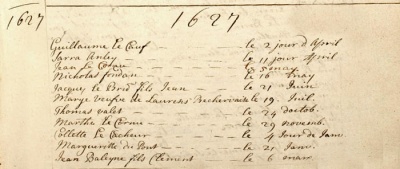 1627 1627
Guillaume Le Cœuf — le 2 jour d'Aprill
Sarra Anley — le 11 jour Aprill
Jean Le — le 5 may
Nicholas foudan — le 16 may
Jacques Le Brd fils Jean — le 21 Juin
Marye veufve de Laurens Bechervaise le 19. Juil.
Thomas valet — le 24 d'octob.
Marthe Le Cornu — le 29 novemb.
Collette Le Cocheur — le 4 Jour de Janv.
Marguerite du Pont — le 21 Janv.
Jean Baleyne fils Clement — le 6 mars